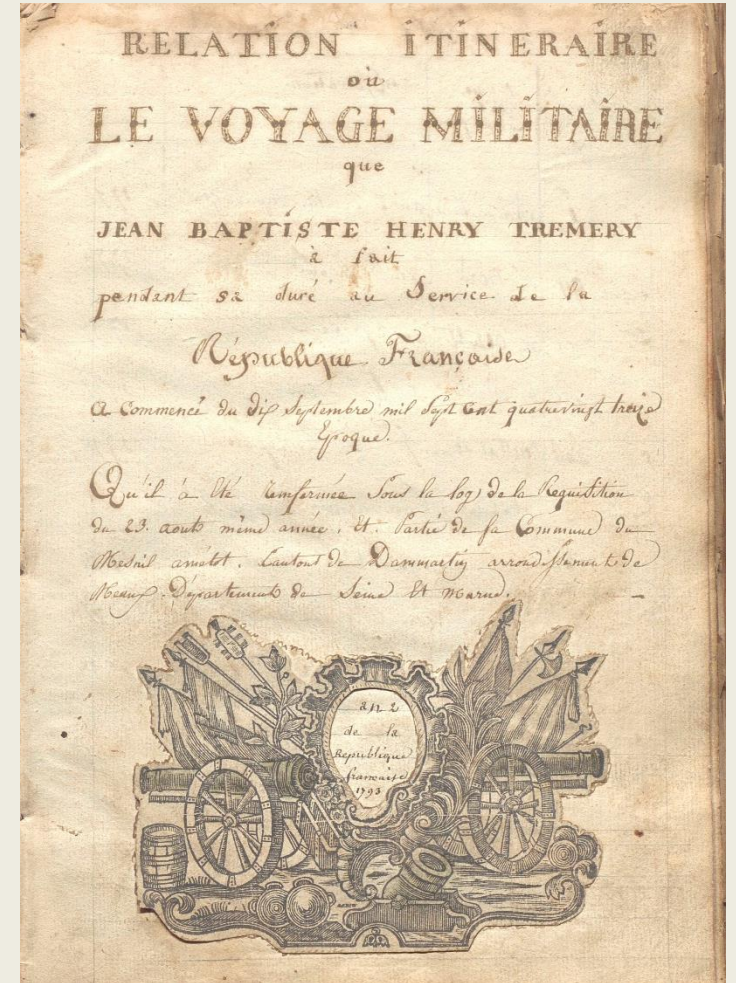 RELATION ITINERAIRE
où
LE VOYAGE MILITAIRE
que
JEAN BAPTISTE HENRY TREMERY
à fait
pendant sa duré au Service de la
République Française
A Commencé du dix Septembre mil Sept Cent quatrevingt treize
Epoque.
Qu'il à été renfermée Sous la loy de la Requisition
du 23. aout même année. Et Partie de sa Commune du
Mesnil amelot. Canton de Dammartin arrondissement de
Meaux. Département de Seine Et Marne.
an 2
de la
Republique
francaise
1793